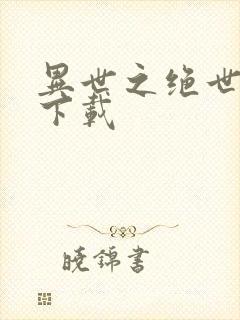 異世之绝世
下載
晓锦書